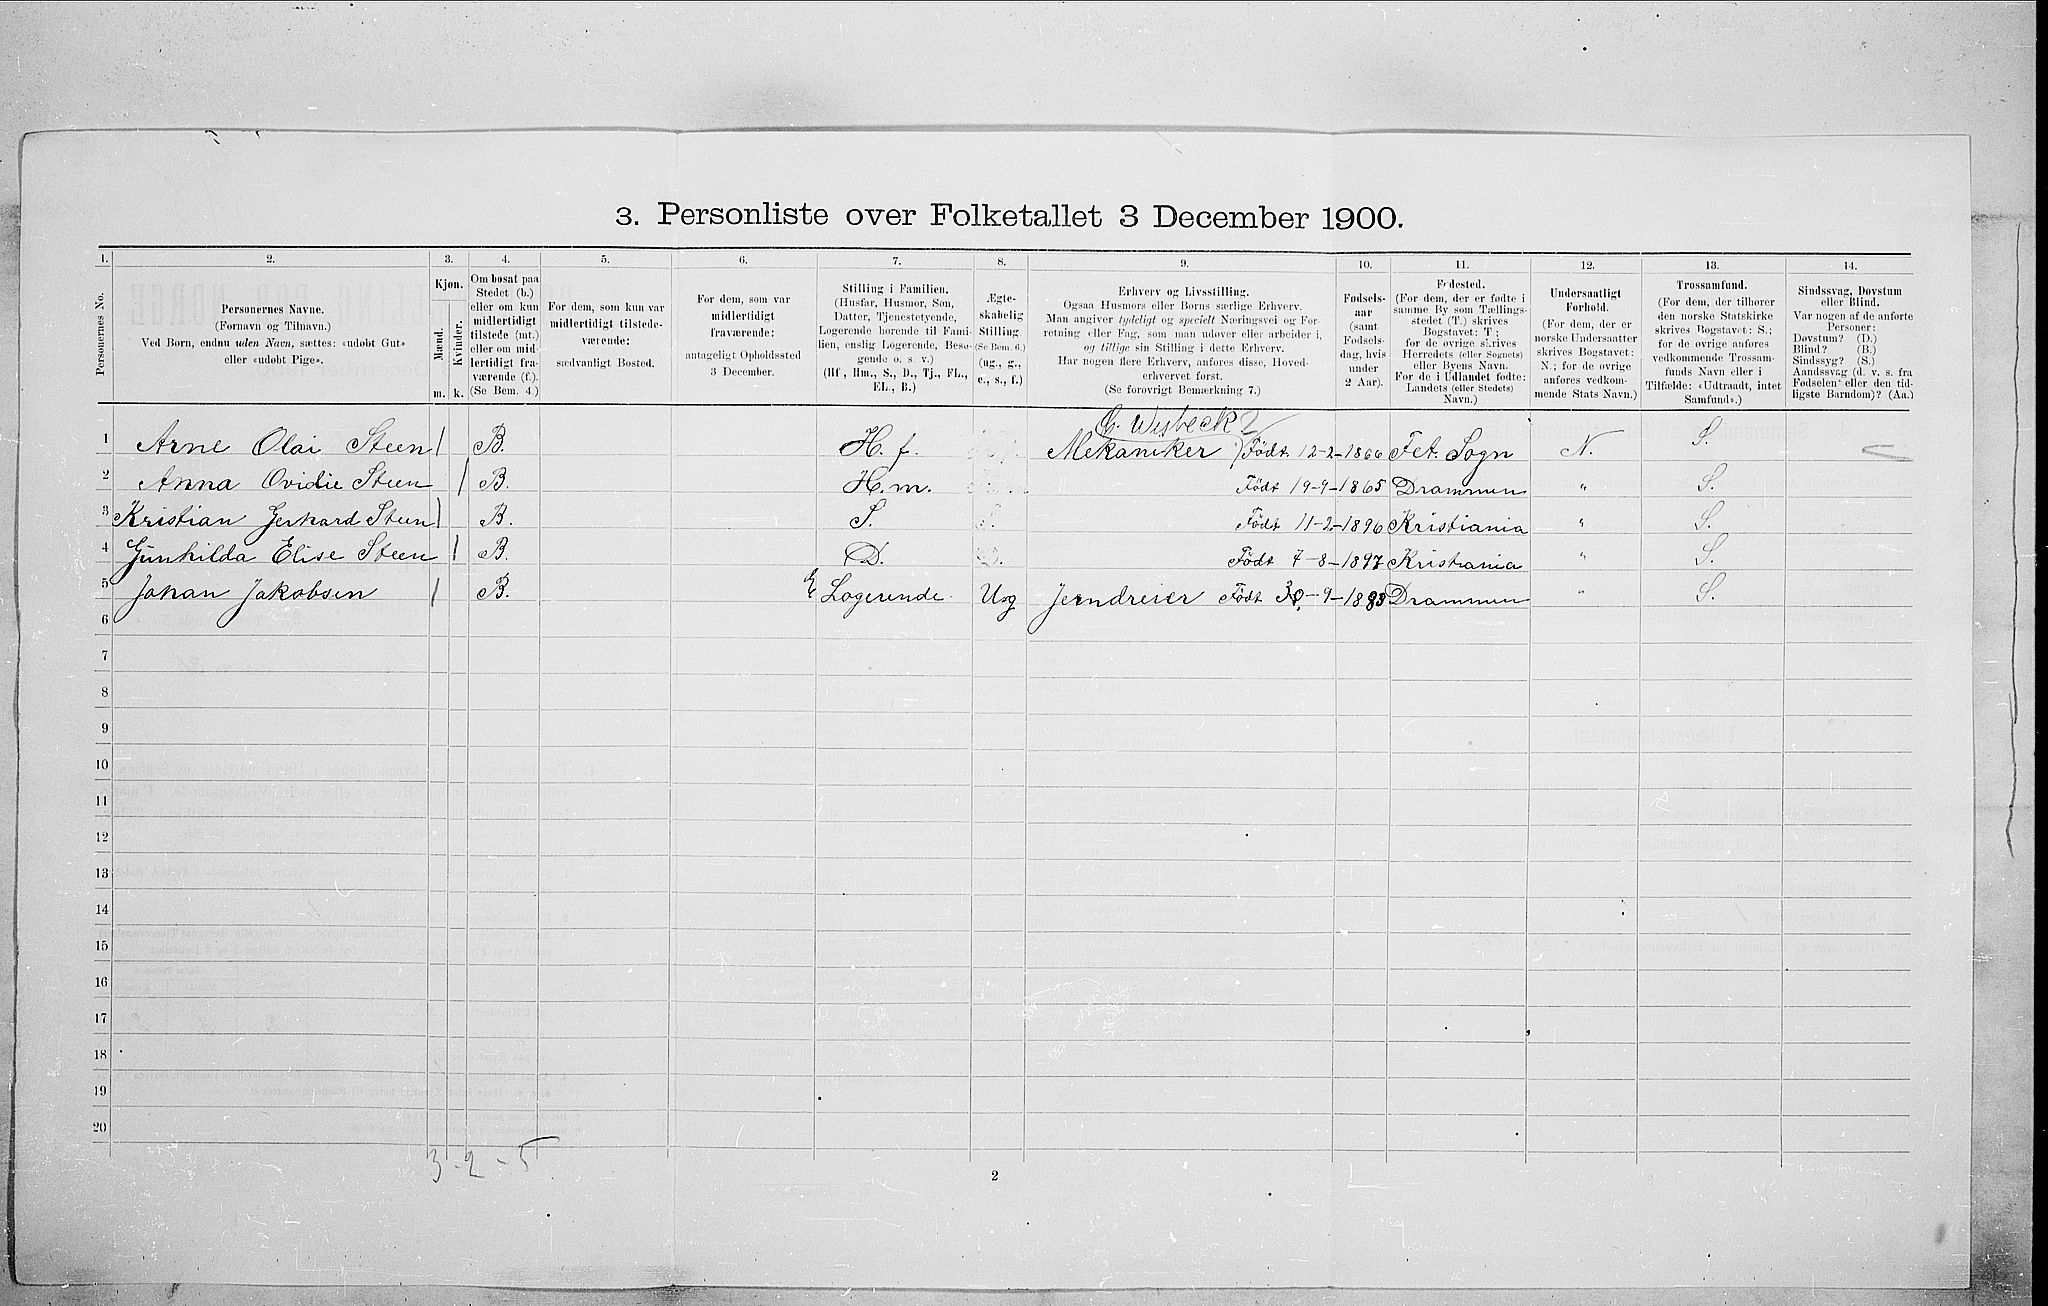 3. Personliste over Folketallet 3 December 1900.
1. 2. 3. 4. 5. 6. 7. 8. 9. 10. 11. 12. 13. 14.
Personernes No.
Personernes Navne.
(Fornavn og Tilnavn.)
Ved Børn, endnu uden Navn, sættes: «udøbt Gut»
eller «udøbt Pige».
Kjøn.
Mænd.
Kvinder.
m. k.
Om bosat paa
Stedet (b.)
eller om kun
midlertidigt
tilstede (mt.)
eller om mid-
lertidigt fra-
værende (f.).
(Se Bem. 4.)
For dem, som kun var
midlertidigt tilstede-
værende:
sædvanligt Bosted.
For dem, som var
midlertidigt
fraværende:
antageligt Opholdssted
3 December.
Stilling i Familien.
(Husfar, Husmor, Søn,
Datter, Tjenestetyende,
Logerende hørende til Fami-
lien, enslig Logerende, Besø-
gende o. s. v.)
(Hf., Hm., S., D., Tj., FL.,
EL., B.)
Ægte-
skabelig
Stilling
(Se Bem. 6.)
(ug., g.,
e., s., f.)
Erhverv og Livsstilling.
Ogsaa Husmors eller Børns særlige Erhverv.
Man angiver tydeligt og specielt Næringsvei og For-
retning eller Fag, som man udøver eller arbeider i,
og tillige sin Stilling i dette Erhverv.
Har nogen flere Erhverv, anføres disse, Hoved-
erhvervet først.
(Se forøvrigt Bemærkning 7.)
Fødsels-
aar
(samt
Fødsels-
dag, hvis
under
2 Aar).
Fødested.
(For dem, der er fødte i
samme By som Tællings-
stedet (T.) skrives
Bogstavet: T;
for de øvrige skrives
Herredets (eller Sognets)
eller Byens Navn.
For de i Udlandet fødte:
Landets (eller Stedets)
Navn.)
Undersaatligt
Forhold.
(For dem, der er
norske Undersaatter
skrives Bogstavet:
N.; for de øvrige
anføres vedkom-
mende Stats Navn.)
Trossamfund.
(For dem, der tilhører
den norske Statskirke
skrives Bogstavet: S.;
for de øvrige anføres
vedkommende Trossam-
funds Navn eller i
Tilfælde: «Udtraadt, intet
Samfund».)
Sindssvag, Døvstum
eller Blind.
Var nogen af de anførte
Personer:
Døvstum? (D.)
Blind? (B.)
Sindssyg? (S.)
Aandssvag (d. v. s. fra
Fødselen eller den tid-
ligste Barndom)? (Aa.)
1 Arne Olai Steen | B. H. f. Mekaniker Født 12-2-1866 Fet. Sogn N. S.
2 Anna Ovidie Steen | B. H. m. Født 19-9-1865 Drammen " S.
3 Kristian Gerhard Steen | B. S. Født 11-2-1896 Kristiania " S.
4 Gunhilda Elise Steen | B. D. Født 7-8-1897 Kristiania " S.
5 Johan Jakobsen | B. E Logerende Ug Jerndreier Født 30-9-1883 Drammen " S.
6
7
8
9
10
11
12
13
14
15
16
17
18
19
20
3-2-5
2